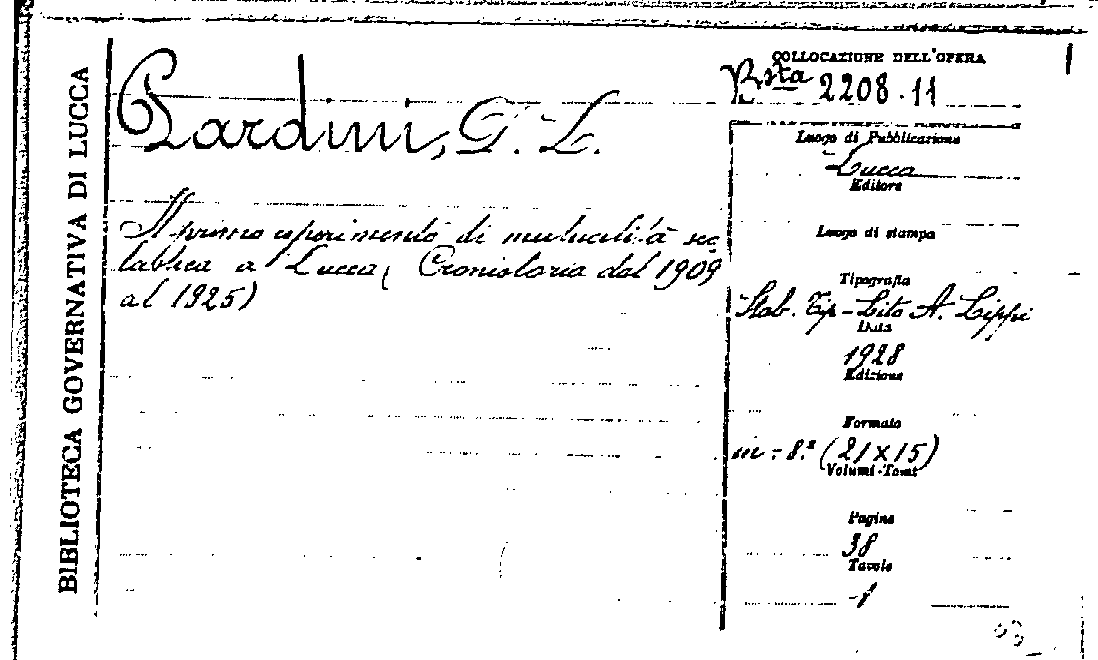 BIBLIOTECA GOVERNATIVA DI LUCCA
Pardini, G. L.
Il primo esperimento di mutualità sco
lastica a Lucca (Cronistoria dal 1909
al 1925)
COLLOCAZIONE DELL'OPERA
Bsta 2208.11
Luogo di Pubblicazione
Lucca
Editore
Luogo di stampa
Tipografia
Stab. Tip-Lito A. Lippi
Data
1928
Edizione
Formato
in-8.° (21x15)
Volumi-Tomi
Pagine
38
Tavole
-1